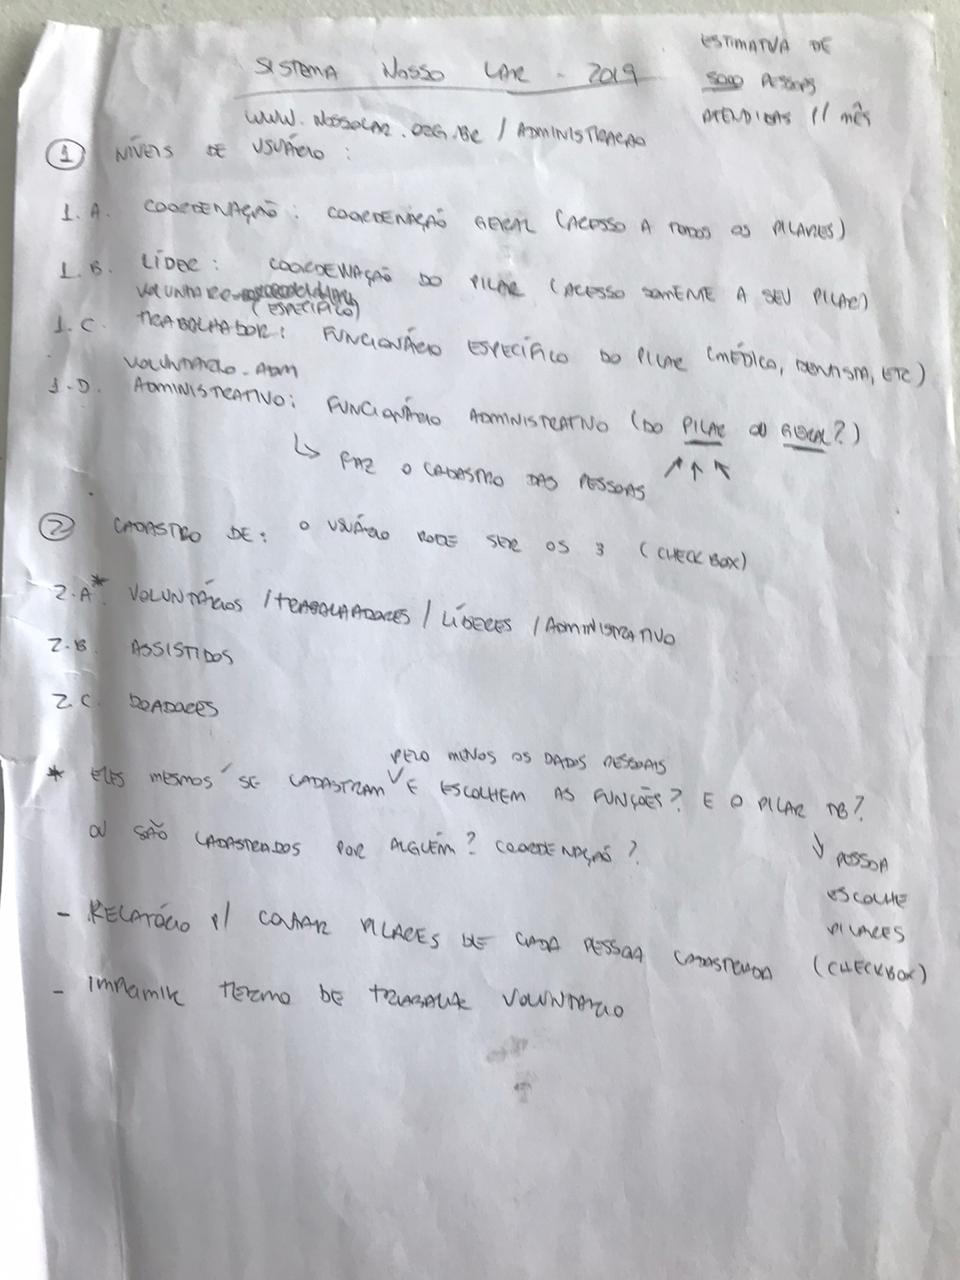 SISTEMA NOSSO LAR - 2019
ESTIMATIVA DE
5000 PESSOAS
ATENDIDAS // MÊS
WWW.NOSSOLAR.ORG.BR / ADMINISTRACAO
1 NÍVEIS DE USUÁRIO:
1.A. COORDENAÇÃO: COORDENAÇÃO GERAL (ACESSO A TODOS OS PILARES)
1.B. LÍDER: COORDENAÇÃO DO PILAR (ACESSO SOMENTE A SEU PILAR)
VOLUNTÁRIO
(ESPECÍFICO)
1.C. TRABALHADOR: FUNCIONÁRIO ESPECÍFICO DO PILAR (MÉDICO, DENTISTA, ETC)
VOLUNTÁRIO - ADM
1.D. ADMINISTRATIVO: FUNCIONÁRIO ADMINISTRATIVO (DO PILAR OU GERAL?)
↳ FAZ O CADASTRO DAS PESSOAS
2 CADASTRO DE: O USUÁRIO PODE SER OS 3 (CHECKBOX)
2.A* VOLUNTÁRIOS / TRABALHADORES / LÍDERES / ADMINISTRATIVO
2.B. ASSISTIDOS
2.C. DOADORES
PELO MENOS OS DADOS PESSOAIS
* ELES MESMOS SE CADASTRAM E ESCOLHEM AS FUNÇÕES? E O PILAR TB?
OU SÃO CADASTRADOS POR ALGUÉM? COORDENAÇÃO?
↓ PESSOA
ESCOLHE
PILARES
(CHECKBOX)
- RELATÓRIO P/ COLAR PILARES DE CADA PESSOA CADASTRADA
- IMPRIMIR TERMO DE TRABALHO VOLUNTÁRIO